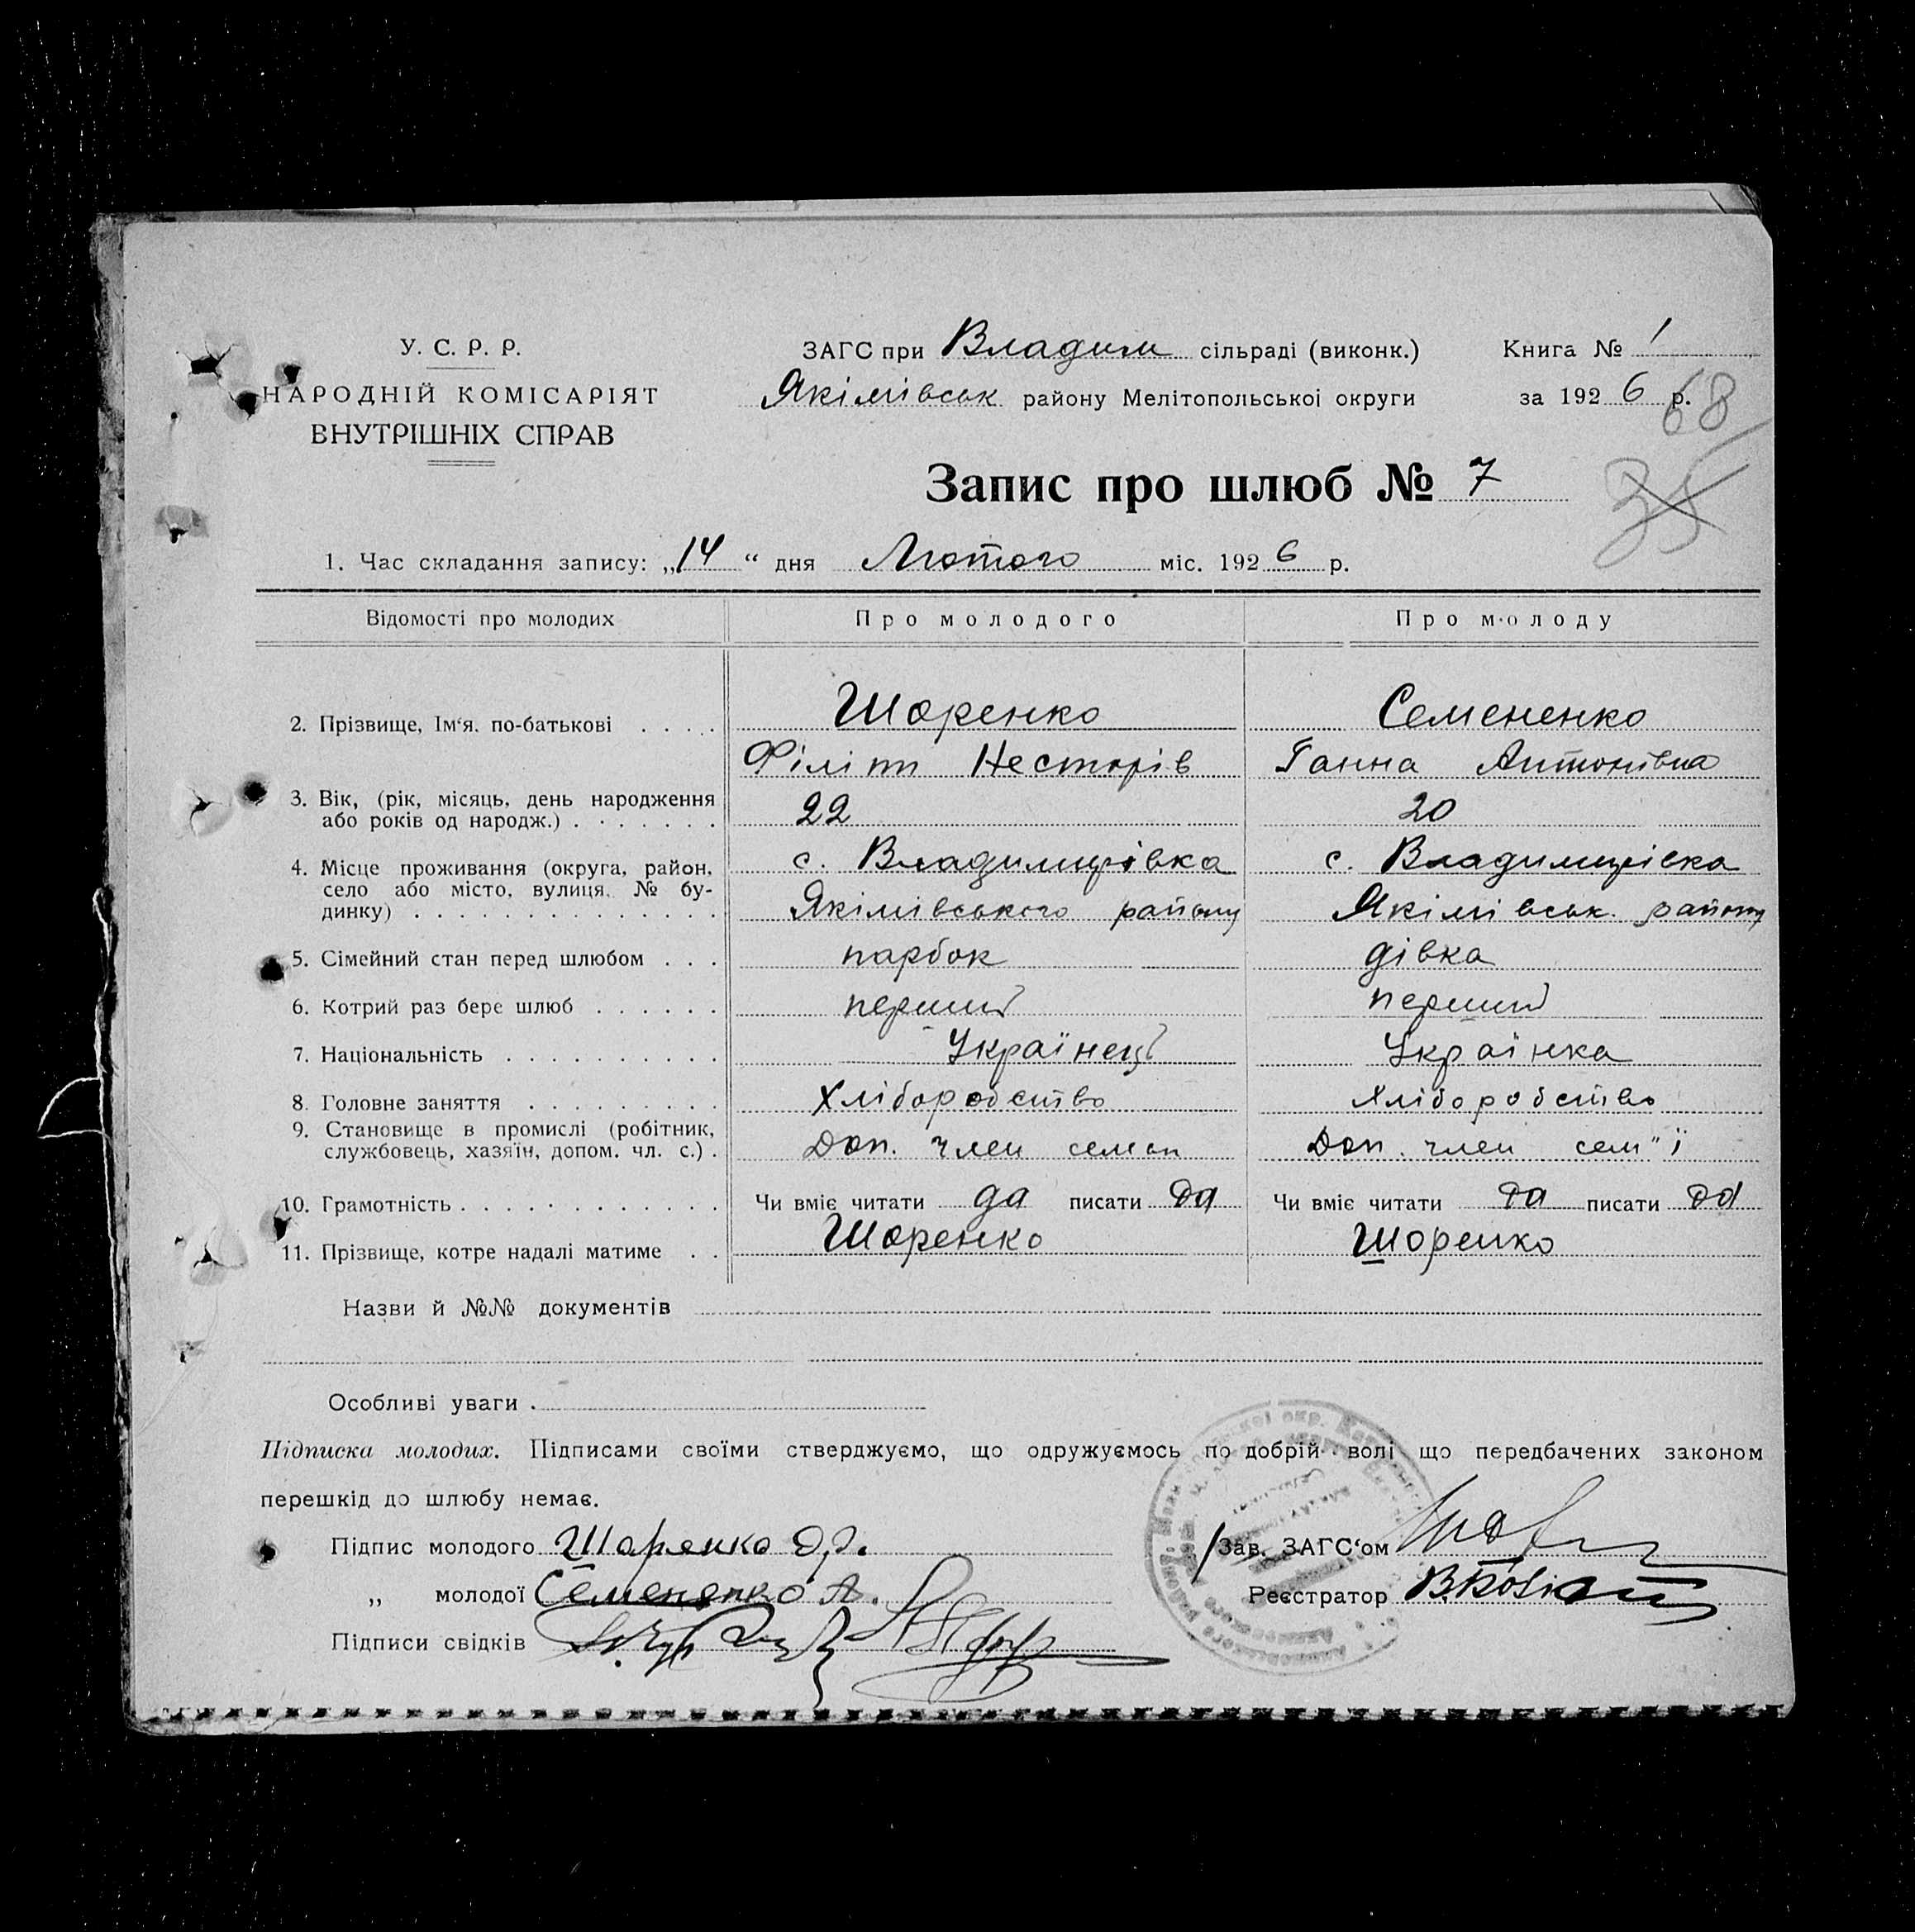 У. С. Р. Р.
НАРОДНІЙ КОМІСАРІЯТ
ВНУТРІШНІХ СПРАВ
ЗАГС при Владим сільраді (виконк.)
Якімівськ району Мелітопольської округи
Книга № 1
за 192 6 р.
68
35
Запис про шлюб № 7
1. Час складання запису: „14“ дня Лютого міс. 192 6 р.
Відомості про молодих Про молодого Про молоду
2. Прізвище, Ім'я. по-батькові . . . . Шоренко Семененко
Філіпп Несторів Ганна Антонівна
3. Вік, (рік, місяць, день народження
або років од народж.) . . . . . . . 22 20
4. Місце проживання (округа, район,
село або місто, вулиця. № бу-
динку) . . . . . . . . . . . . . .
с. Владимирівка с. Владимирівка
Якімівського району Якімівськ. району
5. Сімейний стан перед шлюбом . . . парбок дівка
6. Котрий раз бере шлюб . . . . . . перший перший
7. Національність . . . . . . . . . . Українець Українка
8. Головне заняття . . . . . . . . . Хліборобство Хліборобство
9. Становище в промислі (робітник,
службовець, хазяїн, допом. чл. с.) . Доп. член семьи Доп. член сем"ї
10. Грамотність . . . . . . . . . . . . Чи вміє читати да писати да Чи вміє читати да писати да
11. Прізвище, котре надалі матиме . . Шоренко Шоренко
Назви й №№ документів
Особливі уваги .
Підписка молодих. Підписами своїми стверджуємо, що одружуємось по добрій волі що передбачених законом
перешкід до шлюбу немає.
Підпис молодого Шоренко
„ молодої Семененко А.
Підписи свідків
Зав. ЗАГС'ом
Реєстратор